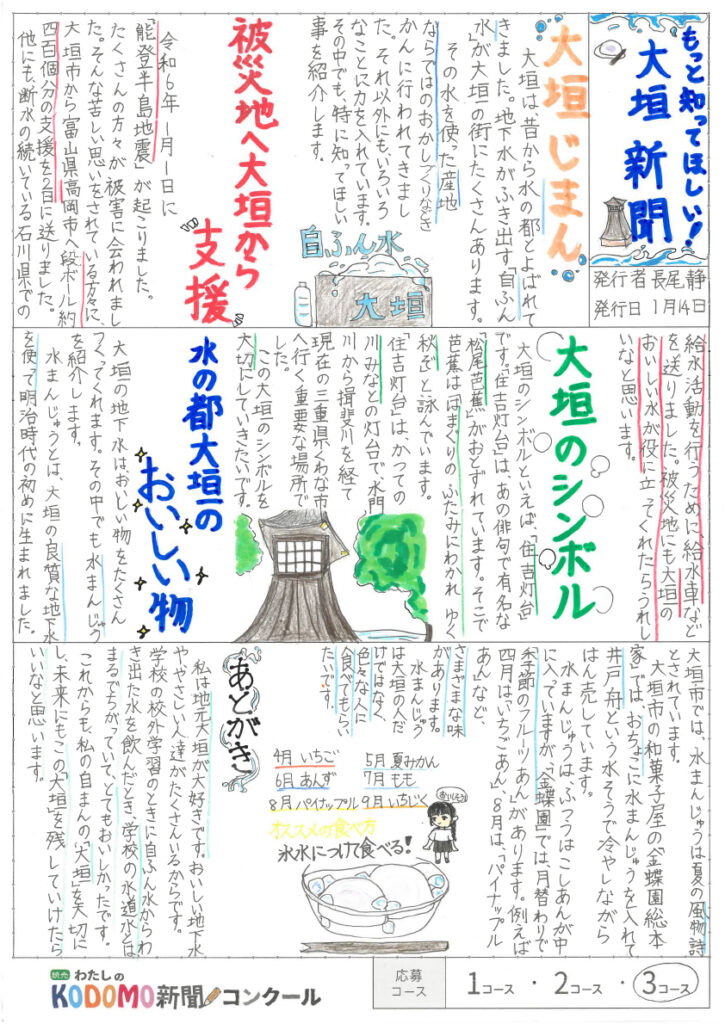 もっと知ってほしい！
大垣新聞
発行者 長尾 静
発行日 1月14日
大垣じまん
大垣は、昔から水の都とよばれて
きました。地下水がふき出す「自ふん
水」が大垣の街にたくさんあります。
その水を使った産地
ならではのおかしづくりなどさ
かんに行われてきまし
た。それ以外にもいろいろ
なことに力を入れています。
その中でも、特に知ってほしい
事を紹介します。
自ふん水
大垣
被災地へ大垣から
支援
令和6年1月1日に
「能登半島地震」が起こりました。
たくさんの方々が被害に会われまし
た。そんな苦しい思いをされている方々に、
大垣市から富山県高岡市へ段ボール約
四百個分の支援を2日に送りました。
他にも、断水の続いている石川県での
給水活動を行うために、給水車など
を送りました。被災地にも大垣の
おいしい水が役に立ってくれたらうれし
いなと思います。
大垣のシンボル
大垣のシンボルといえば、「住吉灯台」
です。「住吉灯台」は、あの俳句で有名な
「松尾芭蕉」がおとずれています。そこで
芭蕉は「はまぐりの ふたみにわかれ ゆく
秋ぞ」と詠んでいます。
「住吉灯台」は、かつての
川みなとの灯台で、水門
川から揖斐川を経て
現在の三重県くわな市
へ行く重要な場所で
した。
この大垣のシンボルを
大切にしていきたいです。
水の都大垣の
おいしい物
大垣の地下水はおいしい物をたくさん
つくってくれます。その中でも水まんじゅう
を紹介します。
水まんじゅうとは、大垣の良質な地下水
を使って明治時代の初めに生まれました。
大垣市では、水まんじゅうは夏の風物詩
とされています。
大垣市の和菓子屋の「金蝶園総本
家」では、おちょこに水まんじゅうを入れて
井戸舟という水そうで冷やしながら
はん売しています。
水まんじゅうは、ふつうはこしあんが中
に入っていますが、「金蝶園」では、月替わりで
季節のフルーツあんがあります。例えば
四月は、「いちごあん」、8月は、「パイナップル
あん」など、
さまざまな味
があります。
水まんじゅう
は大垣の人だ
けではなく、
色々な人に
食べてもらい
たいです。
4月 いちご
5月 夏みかん
6月 あんず
7月 もも
8月 パイナップル
9月 いちじく
おいしそう
オススメの食べ方
氷水につけて食べる!
あとがき
私は地元大垣が大好きです。おいしい地下水
ややさしい人達がたくさんいるからです。
学校の校外学習のときに自ふん水からわ
き出た水を飲んだとき、学校の水道水とは
まるでちがっていて、とてもおいしかったです。
これからも、私の自まんの「大垣」を大切に
し、未来にもこの「大垣」を残していけたら
いいなと思います。
読売 わたしの
KODOMO新聞コンクール
応募
コース
1コース ・ 2コース ・ 3コース